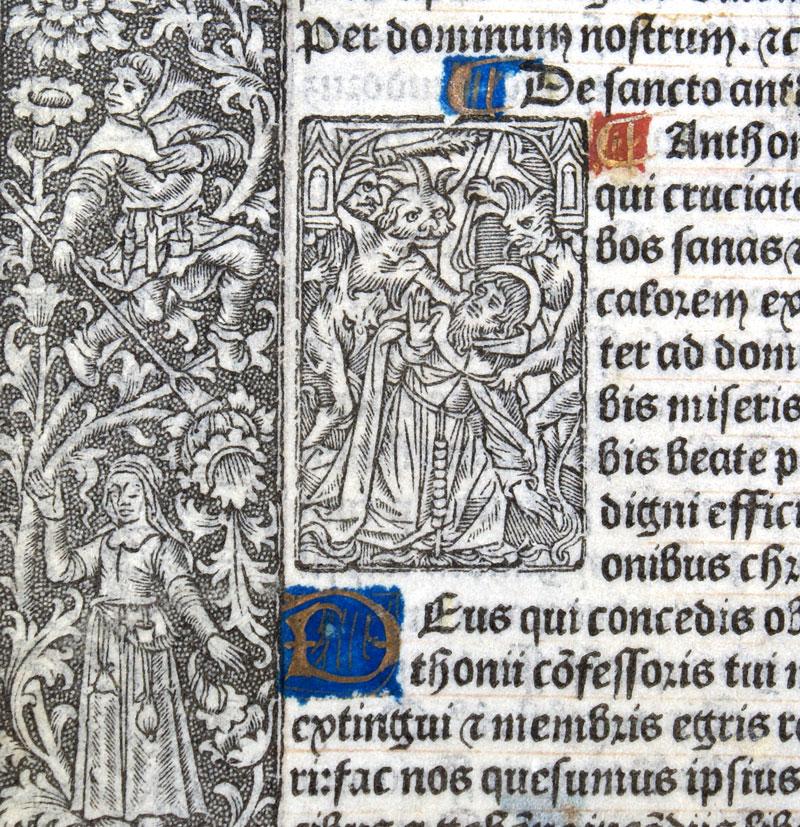 Per dominum nostrum. ⁊c
De sancto ant
Anthon
qui cruciato
bos sanas ⁊
calorem ex
ter ad dom
bis miseris
bis beate p
digni effici
onibus chr
Deus qui concedis ob
thonii cōfessoris tui
extingui ⁊ membris egris re
ri: fac nos quesumus ipsius